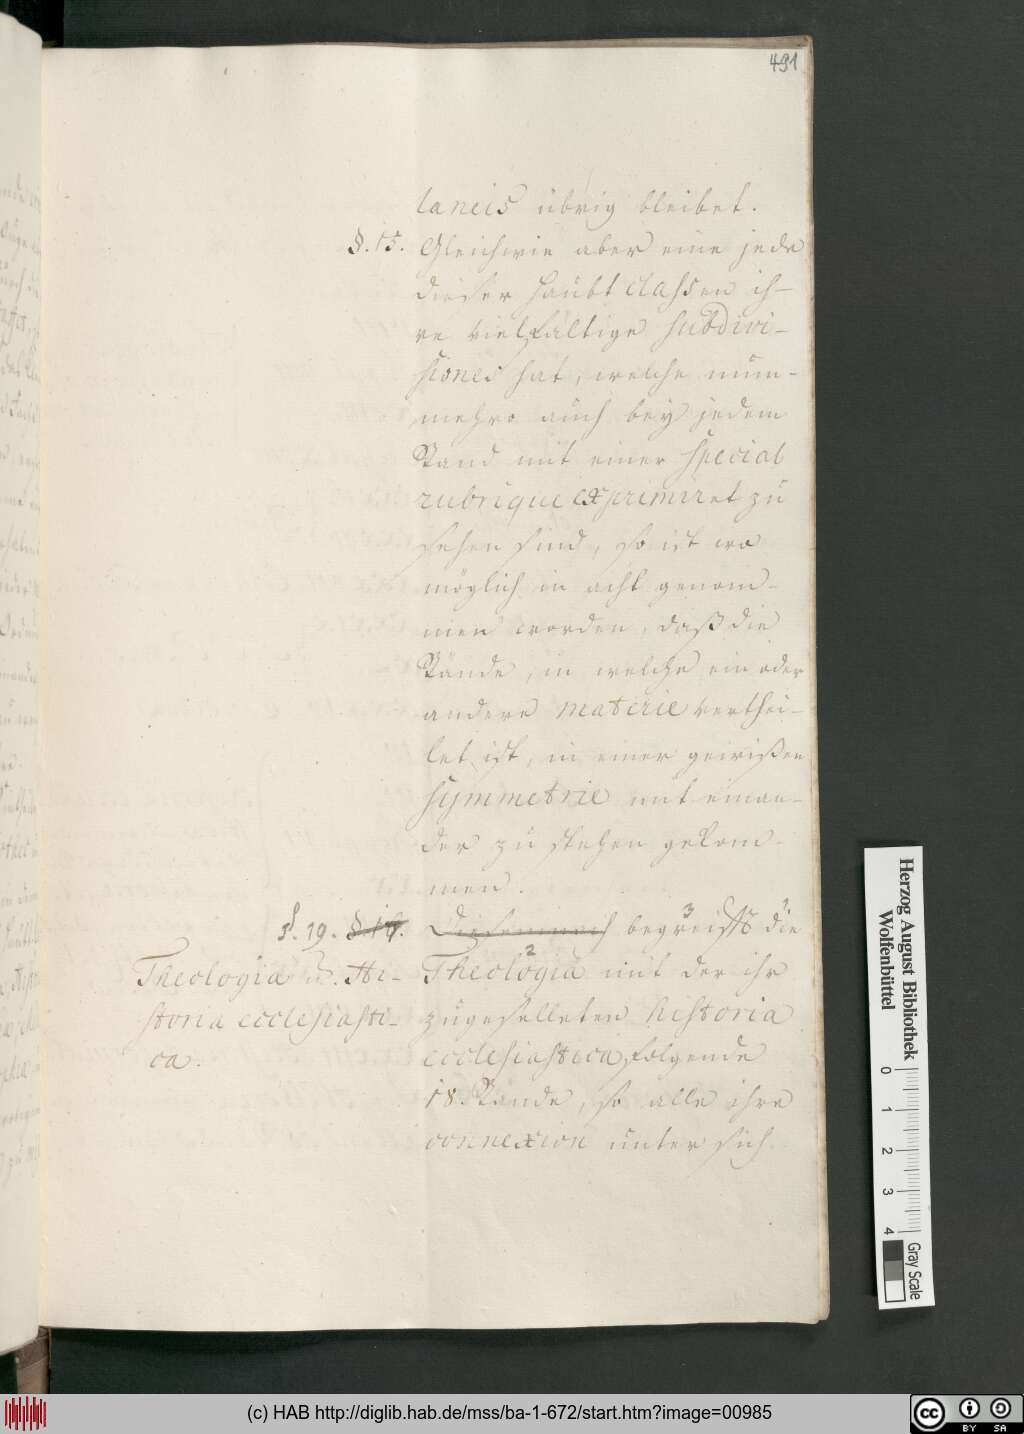 491
laneis übrig bleibet.
§. 15. Gleichwie aber eine jede
dieser Haubt Classen ih-
re vielfältige subdivi-
siones hat, welche nun-
mehro auch bey jedem
Stand mit einer special
rubrique exprimiret zu
sehen sind, so ist wo
möglich in acht genom-
men worden, daß die
Stände, in welche ein oder
andere materie verthei-
let ist, in einer gewißen
Symmetrie mit einan-
der zu stehen gekom-
men.
§. 19. §. 16. Diesemnach begreifft die
3 1
Theologia u. Hi-
storia ecclesiasti-
ca.
2
Theologia mit der ihr
zugeselleten historia
ecclesiastica folgende
18. Stände, so alle ihre
connexion unter sich
Herzog August Bibliothek
Wolfenbüttel
0 1 2 3 4
Gray Scale
(c) HAB http://diglib.hab.de/mss/ba-1-672/start.htm?image=00985
cc BY SA